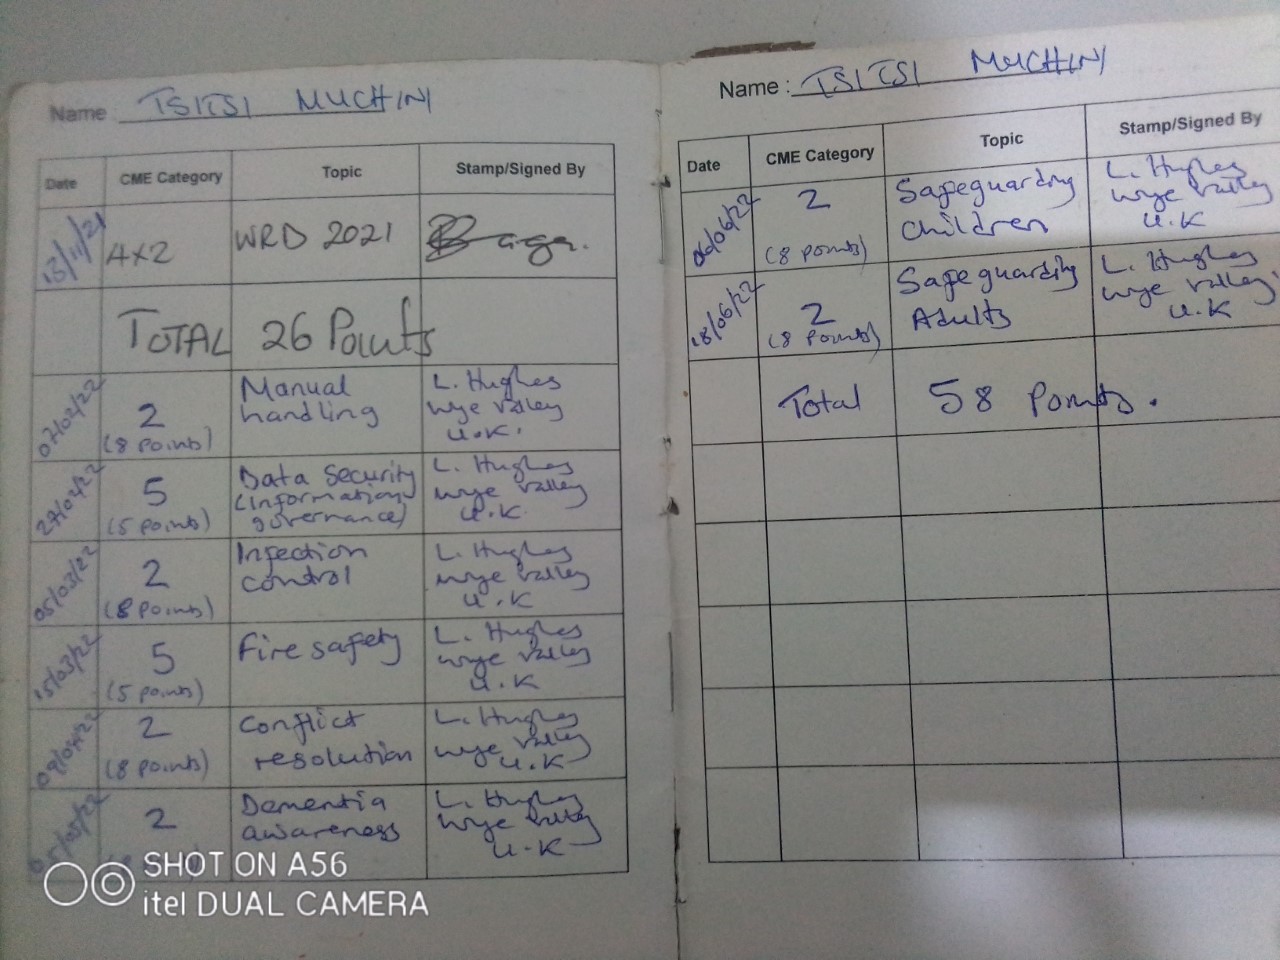 Name : TSITSI MUCHINI
Date CME Category Topic Stamp/Signed By
13/11/21 4x2 WRD 2021
TOTAL 26 Points
07/02/22 2 (8 points) Manual handling L. Hughes Wye Valley U.K.
27/02/22 5 (5 points) Data Security (Information governance) L. Hughes Wye Valley U.K
05/03/22 2 (8 points) Infection control L. Hughes Wye Valley U.K
15/03/22 5 (5 points) Fire safety L. Hughes Wye Valley U.K
2 (8 points) Conflict resolution L. Hughes Wye Valley U.K
2 Dementia awareness L. Hughes Wye Valley U.K
Name : TSITSI MUCHINI
Date CME Category Topic Stamp/Signed By
06/06/22 2 (8 points) Safeguarding Children L. Hughes Wye Valley U.K
18/06/22 2 (8 points) Safeguarding Adults L. Hughes Wye Valley U.K
Total 58 Points.
SHOT ON A56
itel DUAL CAMERA